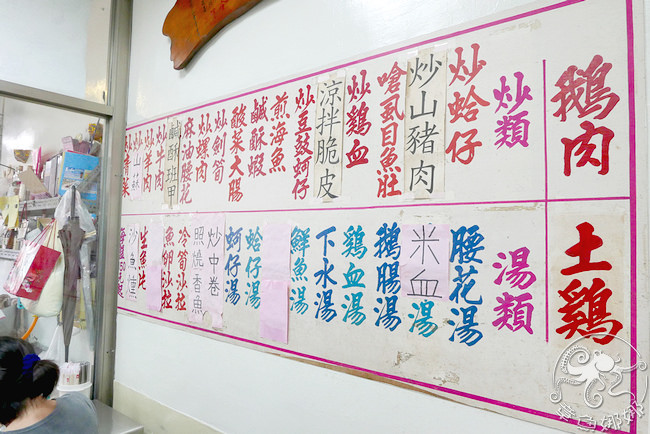 鵝肉
炒類
炒蛤仔
炒山豬肉
嗆虱目魚肚
炒鷄血
涼拌脆皮
炒豆豉蚵仔
煎海魚
鹹酥蝦
酸菜大腸
炒劍筍
炒螺肉
麻油腰花
鹹酥斑甲
炒牛肉
炒羊肉
炒山蘇
炒青菜
土鷄
湯類
腰花湯
米血湯
鵝腸湯
鷄血湯
下水湯
鮮魚湯
蛤仔湯
蚵仔湯
炒中卷
照燒香魚
冷筍沙拉
魚卵沙拉
生魚片
沙魚煙
章魚娜娜